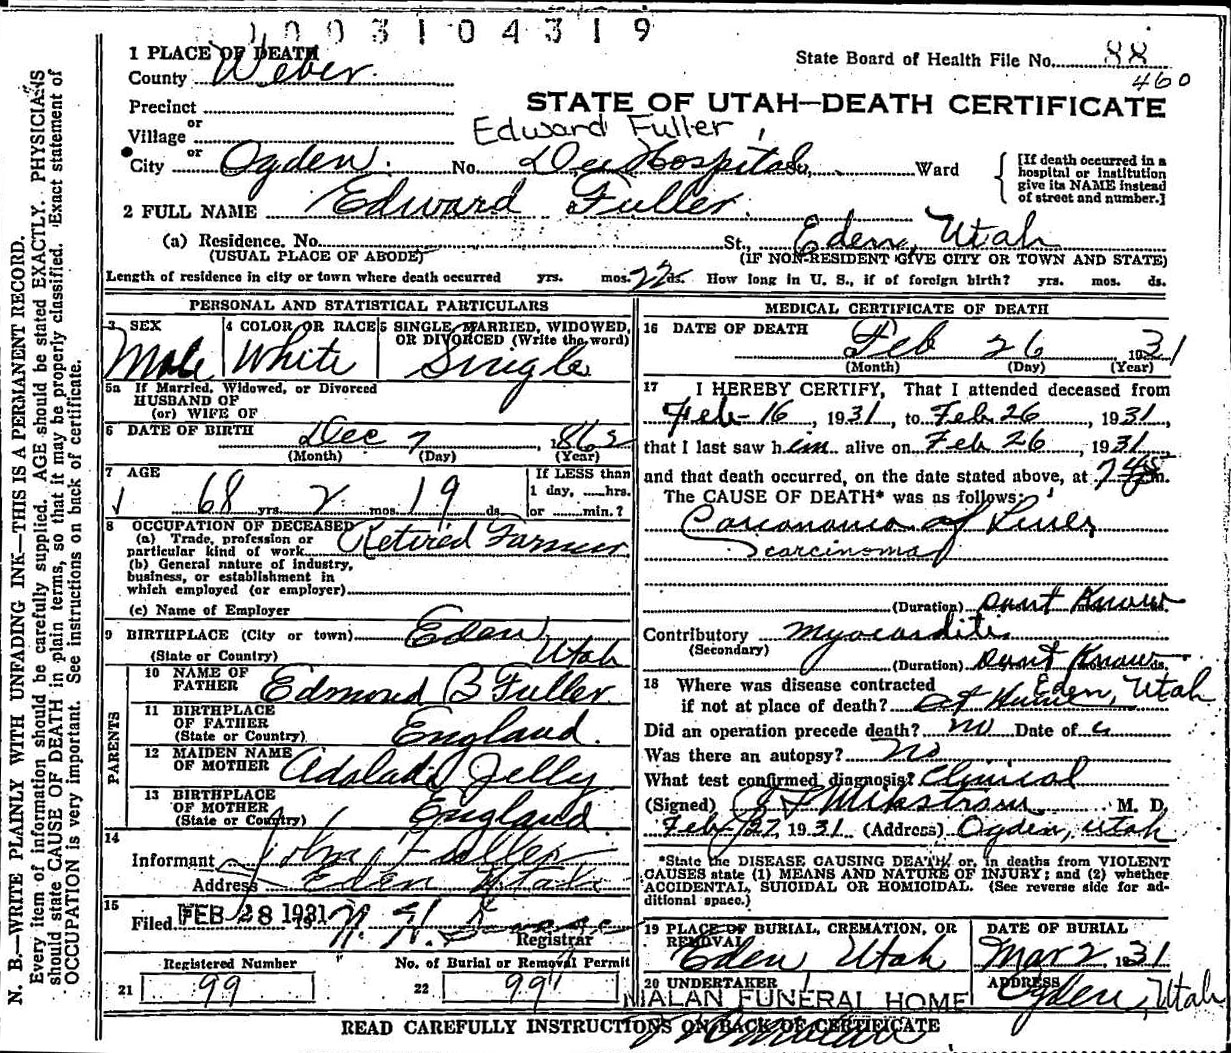 1003104319
1 PLACE OF DEATH
State Board of Health File No. 88
County Weber
460
Precinct
STATE OF UTAH—DEATH CERTIFICATE
or
Village
Edward Fuller
or
City Ogden No. Dee Hospital St., Ward
[If death occurred in a hospital or institution give its NAME instead of street and number.]
2 FULL NAME Edward Fuller
(a) Residence. No. St., Eden, Utah
(USUAL PLACE OF ABODE) (IF NON-RESIDENT GIVE CITY OR TOWN AND STATE)
Length of residence in city or town where death occurred yrs. mos. 22 ds. How long in U. S., if of foreign birth? yrs. mos. ds.
PERSONAL AND STATISTICAL PARTICULARS
3 SEX 4 COLOR OR RACE 5 SINGLE, MARRIED, WIDOWED,
OR DIVORCED (Write the word)
Male White Single
5a If Married, Widowed, or Divorced
HUSBAND OF
(or) WIFE OF
6 DATE OF BIRTH Dec 7 1862
(Month) (Day) (Year)
7 AGE If LESS than
1 day, hrs.
68 yrs. 2 mos. 19 ds. or min.?
8 OCCUPATION OF DECEASED
(a) Trade, profession or
particular kind of work Retired Farmer
(b) General nature of industry,
business, or establishment in
which employed (or employer)
(c) Name of Employer
9 BIRTHPLACE (City or town) Eden
(State or Country) Utah
PARENTS
10 NAME OF
FATHER Edmond B Fuller
11 BIRTHPLACE
OF FATHER
(State or Country) England
12 MAIDEN NAME
OF MOTHER Adalade Jelly
13 BIRTHPLACE
OF MOTHER
(State or Country) England
14
Informant John Fuller
Address Eden Utah
15
Filed FEB 28 1931 N. H.
Registrar
Registered Number No. of Burial or Removal Permit
21 99 22 99
MEDICAL CERTIFICATE OF DEATH
16 DATE OF DEATH
Feb 26 1931
(Month) (Day) (Year)
17 I HEREBY CERTIFY, That I attended deceased from
Feb-16, 1931, to Feb 26, 1931
that I last saw him alive on Feb 26, 1931
and that death occurred, on the date stated above, at 7 45 m.
The CAUSE OF DEATH* was as follows:
Carconania of Liver
carcinoma
(Duration) Dont Know
Contributory Myocarditis
(Secondary)
(Duration) Dont Know ds.
18 Where was disease contracted
if not at place of death? At Home Eden, Utah
Did an operation precede death? No Date of
Was there an autopsy? No
What test confirmed diagnosis? Clinical
(Signed) M. D.
Feb 27 1931 (Address) Ogden, Utah
*State the DISEASE CAUSING DEATH, or, in deaths from VIOLENT
CAUSES state (1) MEANS AND NATURE OF INJURY; and (2) whether
ACCIDENTAL, SUICIDAL OR HOMICIDAL. (See reverse side for ad-
ditional space.)
19 PLACE OF BURIAL, CREMATION, OR
REMOVAL
Eden Utah
DATE OF BURIAL
Mar 2 1931
20 UNDERTAKER
MALAN FUNERAL HOME
ADDRESS
Ogden, Utah
READ CAREFULLY INSTRUCTIONS ON BACK OF CERTIFICATE
N. B.—WRITE PLAINLY WITH UNFADING INK—THIS IS A PERMANENT RECORD.
Every item of information should be carefully supplied. AGE should be stated EXACTLY. PHYSICIANS
should state CAUSE OF DEATH in plain terms, so that it may be properly classified. Exact statement of
OCCUPATION is very important. See instructions on back of certificate.